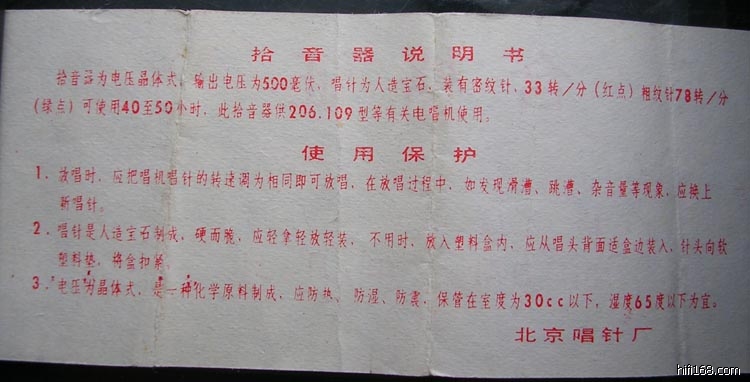 拾音器说明书
拾音器为电压晶体式，输出电压为500毫伏，唱针为人造宝石，装有密纹针，33转／分（红点）粗纹针78转／分
（绿点）可使用40至50小时，此拾音器供206.109型等有关电唱机使用。
使用保护
1．放唱时，应把唱机唱针的转速调为相同即可放唱，在放唱过程中，如发现滑漕、跳漕、杂音量等现象，应换上
新唱针。
2．唱针是人造宝石制成，硬而脆，应轻拿轻放轻装，不用时，放入塑料盒内、应从唱头背面适盒边装入，针头向软
塑料垫，将盒扣紧。
3．电压为晶体式，是一种化学原料制成，应防热、防湿、防震，保管在室度为30cc以下，湿度65度以下为宜。
北京唱针厂
hifi168.com